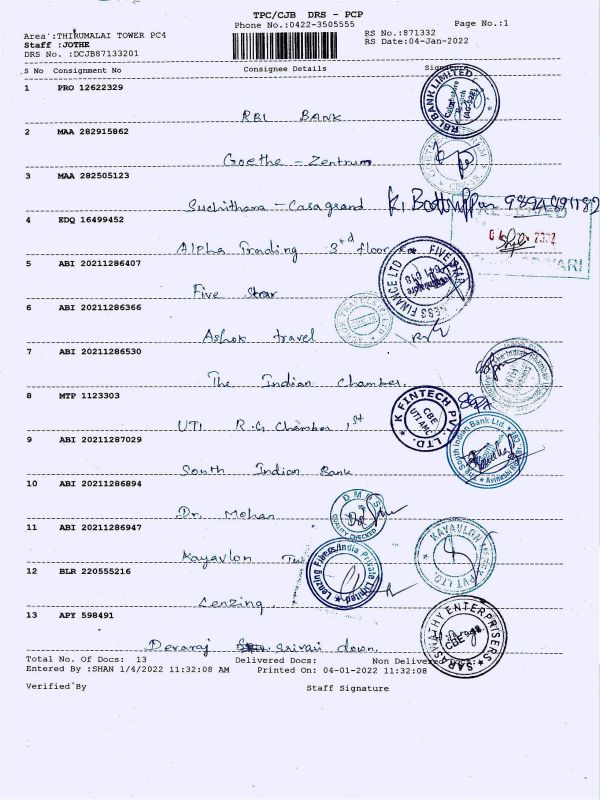 TPC/CJB DRS - PCP
Phone No.:0422-3505555 Page No.:1
Area :THIRUMALAI TOWER PC4 RS No.:871332
Staff :JOTHE RS Date:04-Jan-2022
DRS No. :DCJB87133201
S No Consignment No Consignee Details Signature
1 PRO 12622329
RBL BANK
RBL BANK LIMITED
2 MAA 282915862
Goethe - Zentrum
3 MAA 282505123
Suchithara - Casagrand
4 EDQ 16499452
Alpha Trading 3rd floor
5 ABI 20211286407
Five Star
FIVE STAR BUSINESS FINANCE LTD
6 ABI 20211286366
Ashok travel
7 ABI 20211286530
The Indian Chamber.
8 MTP 1123303
UTI R.G Chember 1st
K FINTECH PVT. LTD.
CBE
UTI AMC
9 ABI 20211287029
South Indian Bank
The South Indian Bank Ltd.
10 ABI 20211286894
Dr. Mohan
QUALITY CHECKED
11 ABI 20211286947
Kayavlon
KAYAVLON PVT LTD.
12 BLR 220555216
Lenzing.
Lenzing Fibres India Private Limited
13 APY 598491
Devaraj srivai down
SARASWATHY ENTERPRISERS
CBE
Total No. Of Docs: 13 Delivered Docs: Non Delivered
Entered By :SHAN 1/4/2022 11:32:08 AM Printed On: 04-01-2022 11:32:08
Verified By Staff Signature